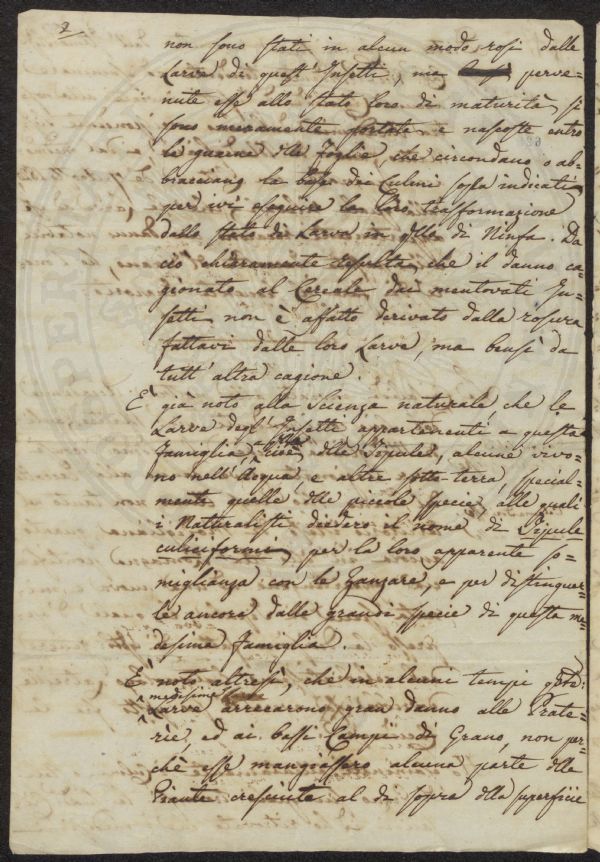 2
non sono stati in alcun modo rosi dalle
Larve di quest' Insetti, ma perve=
nute esse allo stato loro di maturità, si
sono meramente portate, e nascoste entro
le guaine dlle foglie, che circondano o ab=
bracciano la base dei Culmi sopra indicati,
per ivi eseguire la loro trasformazione
dallo stato di Larva in qllo di Ninfa. Da
ciò chiaramente risulta, che il danno ca=
gionato al Cereale dai mentovati In=
setti non è affatto derivato dalla rosura
fattavi dalle loro Larve, ma bensì da
tutt' altra cagione.
E' già noto alla Scienza naturale, che le
Larve degl' Insetti appartenenti a questa
famiglia, cioè dlle Tipule, alcune vivo=
no nell' Acqua, e altre sotto-terra, special=
mente quelle dlle piccole specie, alle quali
i Naturalisti diedero il nome di Tipule
culiciformi, per la loro apparente so=
miglianza con le Zanzare, e per distinguer=
le ancora dalle grandi specie di questa me=
desima famiglia.
E' noto altresì, che in alcuni tempi qste
medesime
Larve arrecarono gran danno alle Prate=
rie, ed ai bassi Campi di Grano, non per=
chè esse mangiassero alcuna parte dlle
Piante cresciute al di sopra dlla superficie